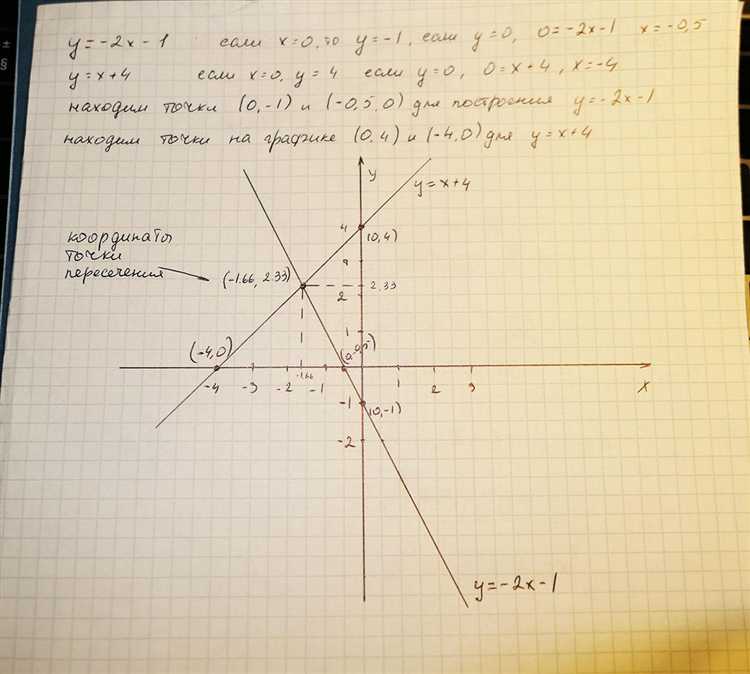 y=-2x-1 если x=0, то y=-1, если y=0, 0=-2x-1 x=-0,5
y=x+4 если x=0, y=4 если y=0, 0=x+4, x=-4
находим точки (0,-1) и (-0,5,0) для построения y=-2x-1
находим точки на графике (0,4) и (-4,0) для y=x+4
y
y=x+4
4
(0,4)
координаты
точки
пересечения
(-1.66, 2.33)
2
2,33
1
(-4,0)
-4 -3 -2 -1.66 -1 1 2 3
x
-1
(0,-1)
-2
y=-2x-1